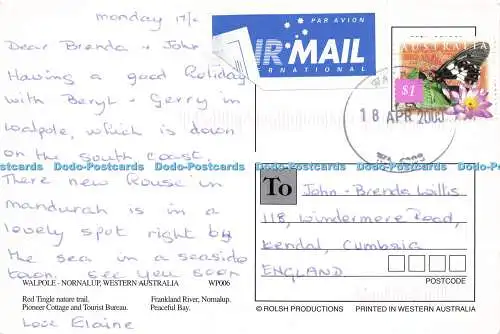 monday 17/4
Dear Brenda + John
Having a good Holiday
with Beryl + Gerry in
Walpole, which is down
on the South Coast.
There new House in
mandurah is in a
lovely spot right by
the sea in a seaside
town. See you soon
WALPOLE - NORNALUP, WESTERN AUSTRALIA WP006
Red Tingle nature trail. Frankland River, Nornalup.
Pioneer Cottage and Tourist Bureau. Peaceful Bay.
Love Elaine
PAR AVION
AIR MAIL
INTERNATIONAL
AUSTRALIA
$1
18 APR 2000
To
John + Brenda Willis
118, Windermere Road,
Kendal, Cumbria
ENGLAND
POSTCODE
© ROLSH PRODUCTIONS PRINTED IN WESTERN AUSTRALIA
Dodo-Postcards Dodo-Postcards Dodo-Postcards Dodo-Postcards Dodo-Postcards Dodo-Postcards